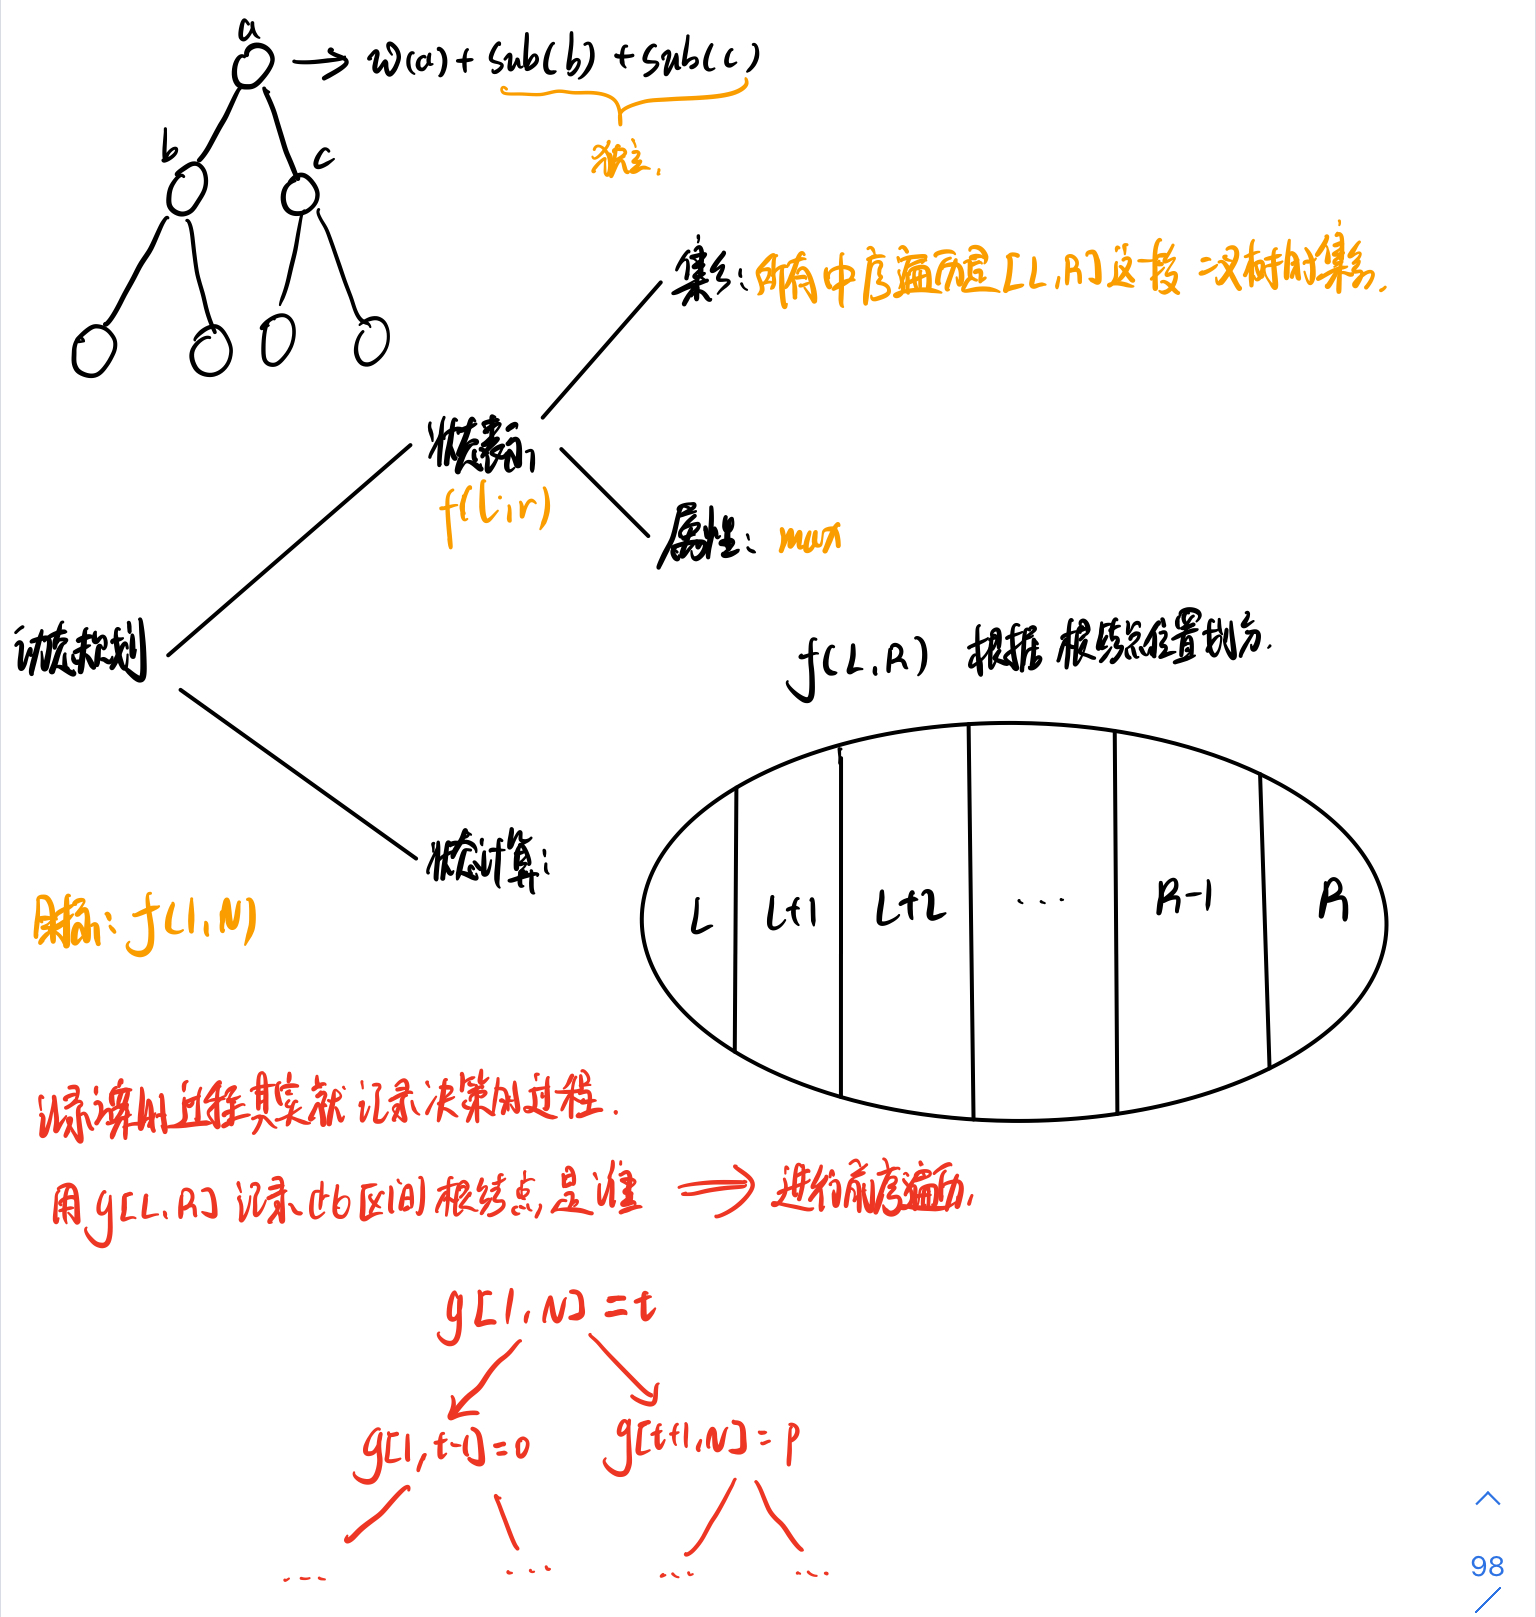 a
→ w(a) + sub(b) + sub(c)
独立.
b
c
集合: 所有中序遍历是 [L,R] 这段 二叉树的集合.
状态表示
f(l,r)
属性: max
动态规划
f(L,R) 根据 根结点位置划分.
状态计算:
L L+1 L+2 ... R-1 R
目标: f(1,N)
记录方案的过程其实就 记录决策的过程.
用 g[L,R] 记录 区间 根结点是谁 → 进行前序遍历.
g[1,N] = t
g[1,t-1] = o
g[t+1,N] = p
... ... ... ...
98